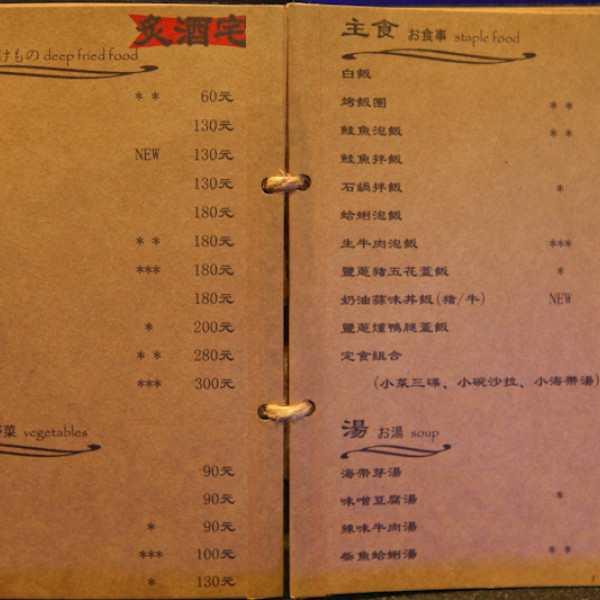 炙酒宅
けもの deep fried food
** 60元
130元
NEW 130元
130元
180元
** 180元
*** 180元
180元
* 200元
** 280元
*** 300元
菜 vegetables
90元
90元
* 90元
*** 100元
* 130元
主食 お食事 staple food
白飯
烤飯團 **
鮭魚泡飯 **
鮭魚拌飯
石鍋拌飯 *
蛤蜊泡飯
生牛肉泡飯 ***
鹽蔥豬五花蓋飯 *
奶油蒜味丼飯(豬/牛) NEW
鹽蔥燻鴨腿蓋飯
定食組合
(小菜三碟、小碗沙拉、小海帶湯)
湯 お湯 soup
海帶芽湯
味噌豆腐湯 *
辣味牛肉湯
柴魚蛤蜊湯 **